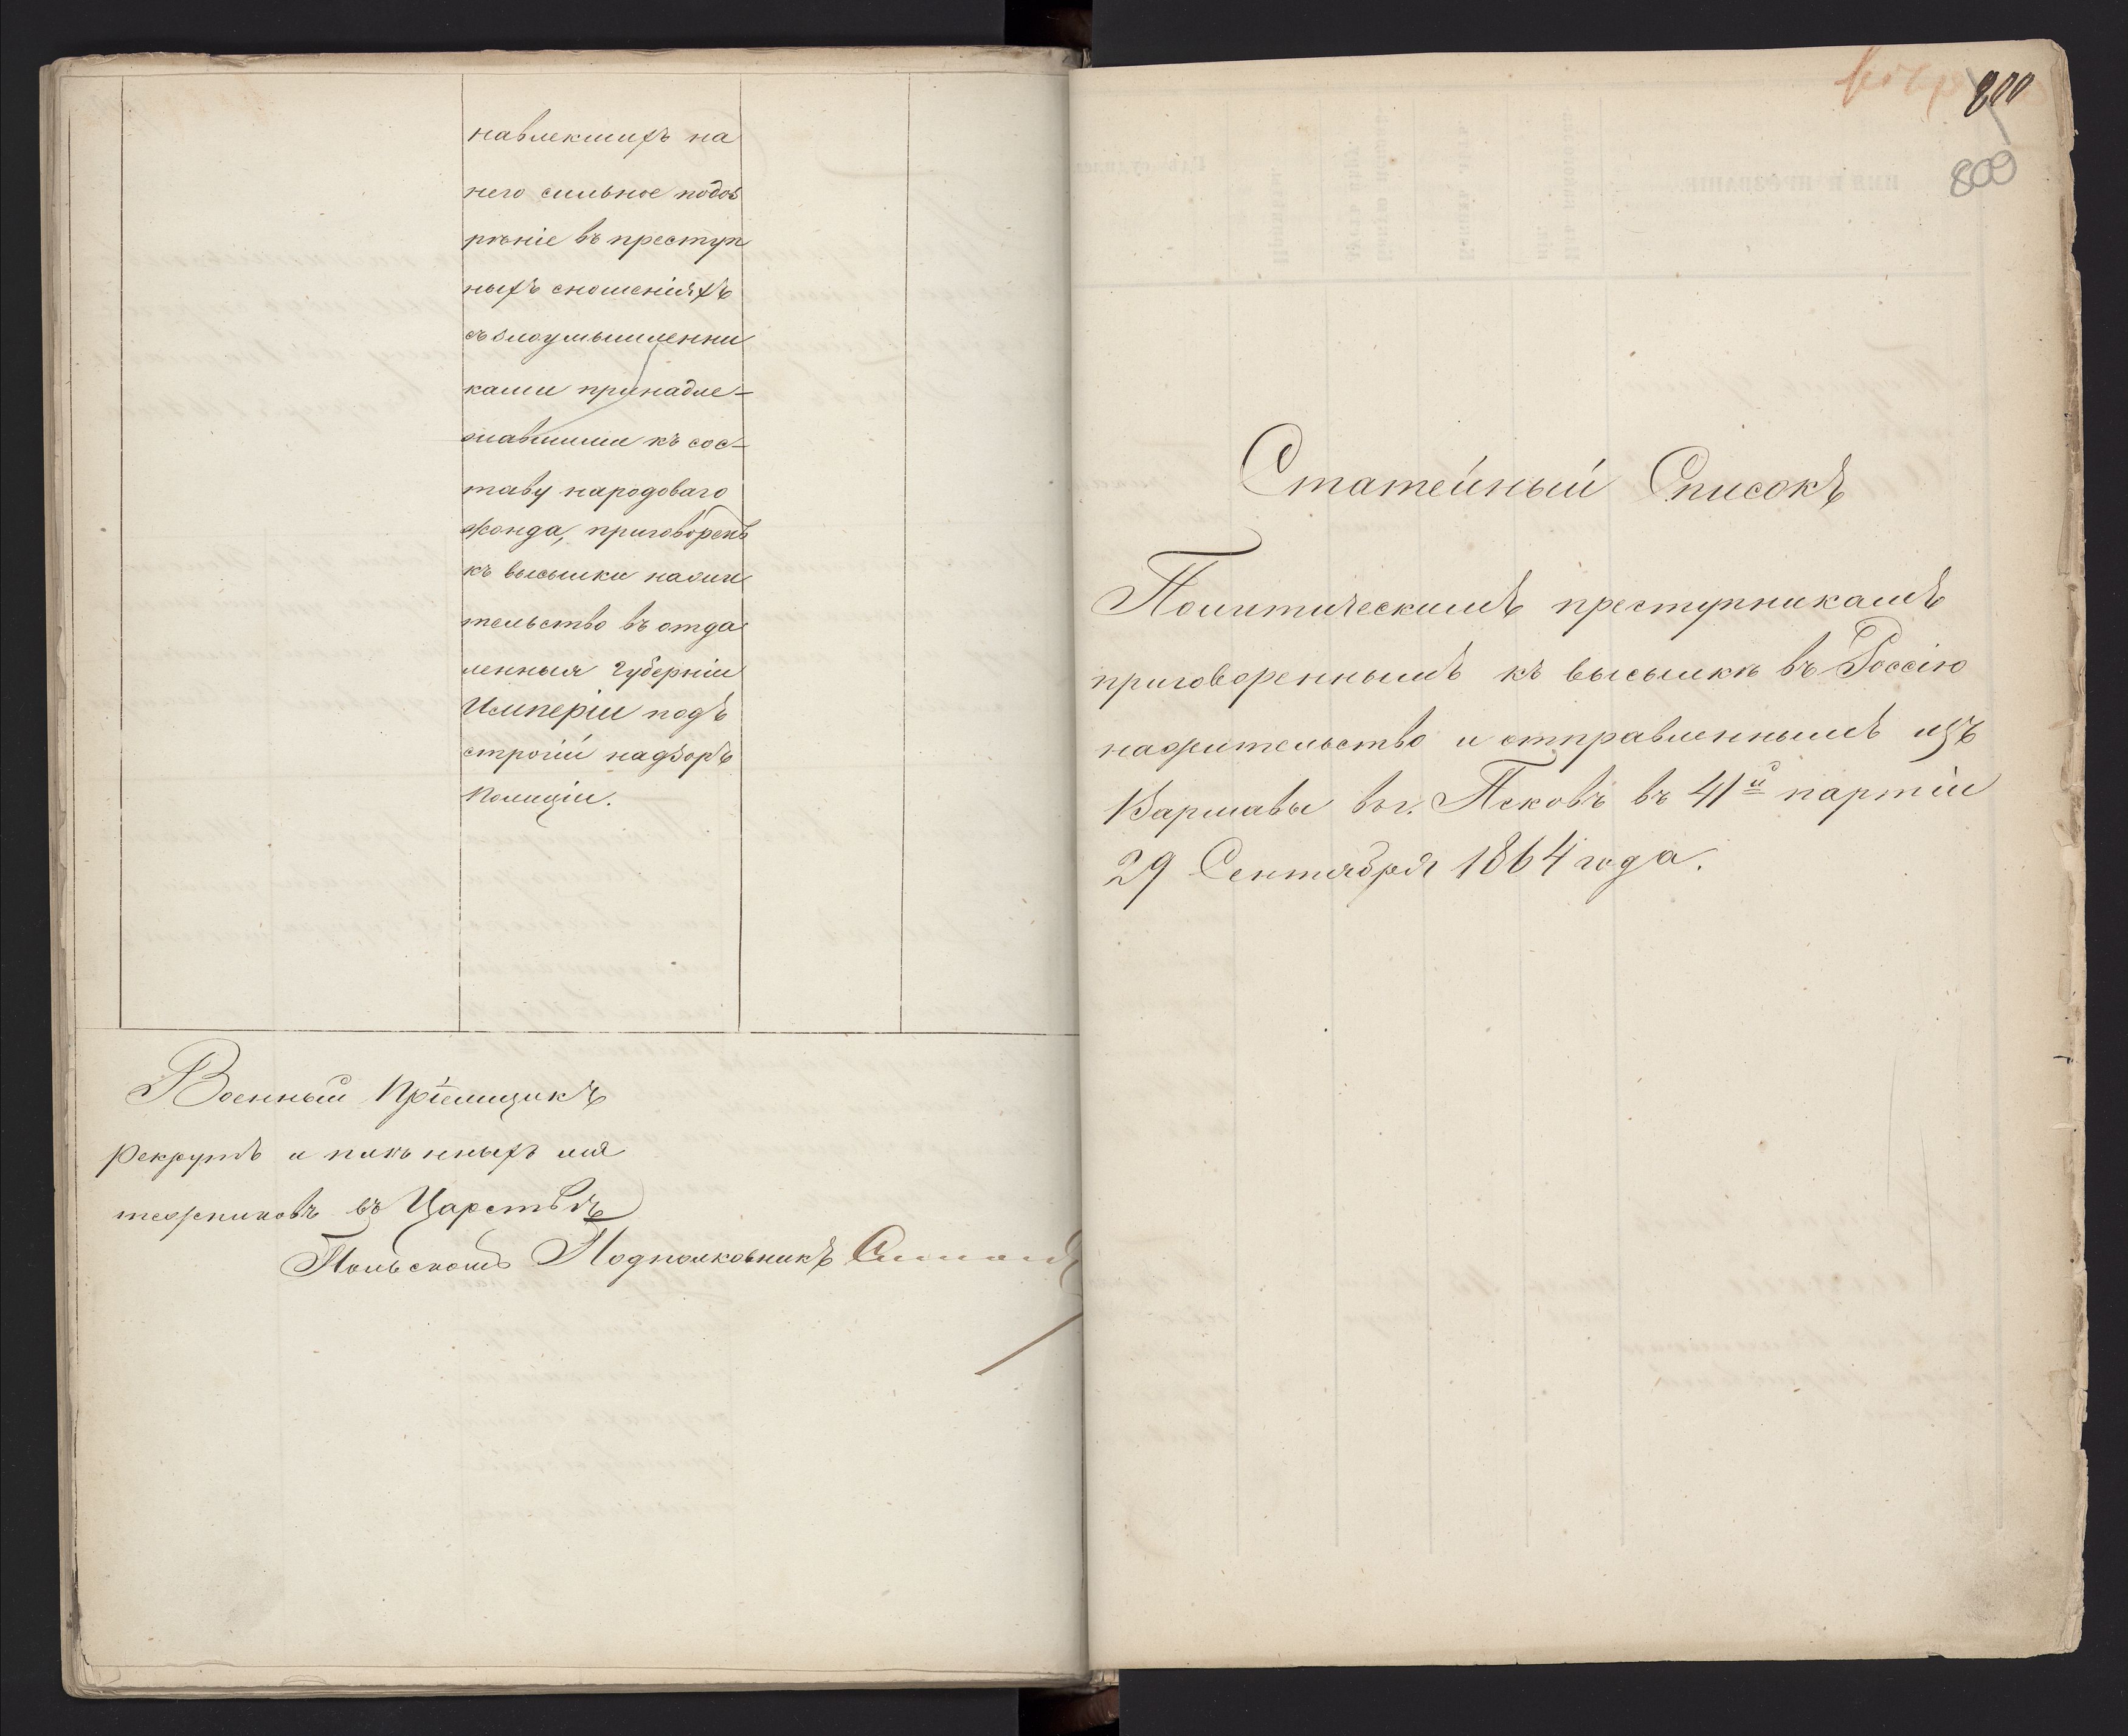 навлекшихъ на
него сильное подоз
рѣніе въ преступ
ныхъ сношеніяхъ
съ злоумышленни
ками принадле-
жавшими къ сос-
таву народоваго
жонда, приговоренъ
къ высылки нажит
тельство въ отда
ленныя Губерніи
Имперіи подъ
строгій надзоръ
Полиціи.
Военный Пріемщикъ
рекрутъ и плѣнныхъ мя
тежниковъ въ Царствѣ
Польскомъ Подполковникъ
800
809
Статейный Списокъ
Политическимъ преступникамъ
приговореннымъ къ высылкѣ въ Россію
нажительство и отправленнымъ изъ
Варшавы въ г. Псковъ въ 41й партіи
29 Сентября 1864 года.